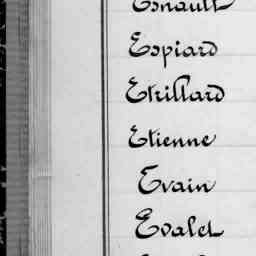 Esnault
Espiard
Etrillard
Etienne
Evain
Evalet